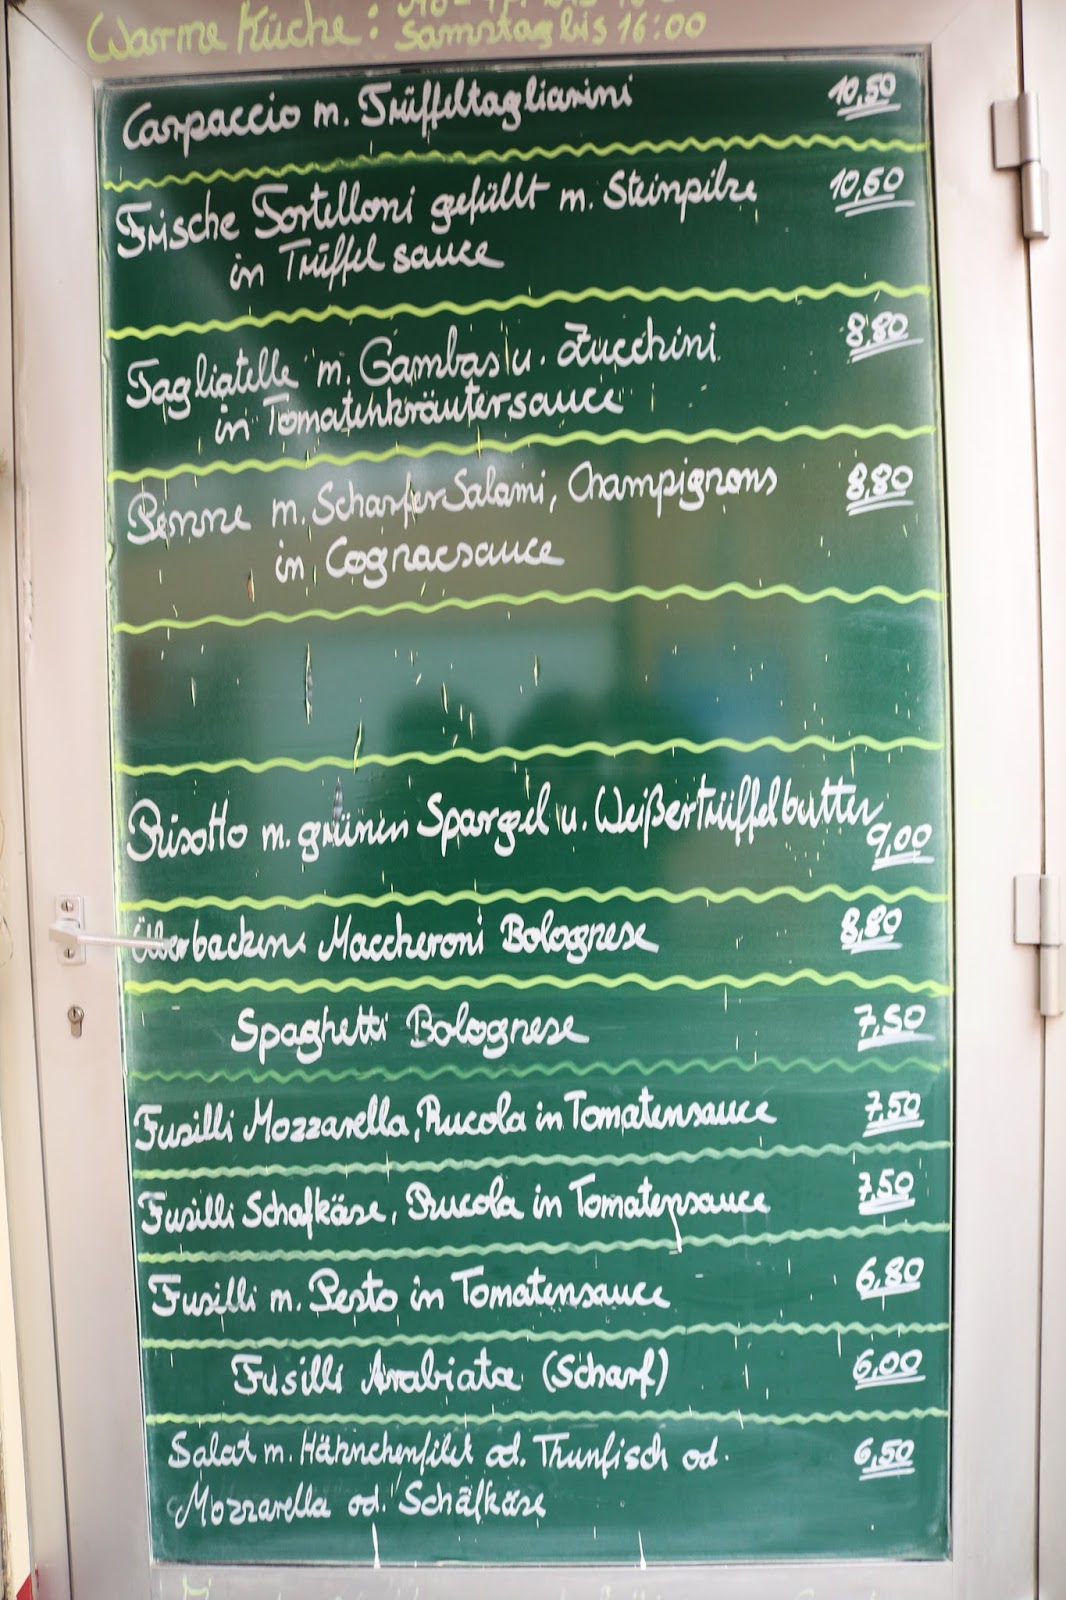 Warme Küche:
Samstag bis 16:00
Carpaccio m. Trüffeltagliarini 10,50
Frische Tortelloni gefüllt m. Steinpilze 10,50
in Trüffel sauce
Tagliatelle m. Gambas u. Zucchini 8,80
in Tomatenkräutersauce
Penne m. Scharfer Salami, Champignons 8,80
in Cognacsauce
Risotto m. grünen Spargel u. Weißertrüffelbutter
9,00
Überbackene Maccheroni Bolognese 8,80
Spaghetti Bolognese 7,50
Fusilli Mozzarella, Rucola in Tomatensauce 7,50
Fusilli Schafkäse, Rucola in Tomatensauce 7,50
Fusilli m. Pesto in Tomatensauce 6,80
Fusilli Arabiata (Scharf) 6,00
Salat m. Hähnchenfilet od. Thunfisch od. 6,50
Mozzarella od. Schäfkäse